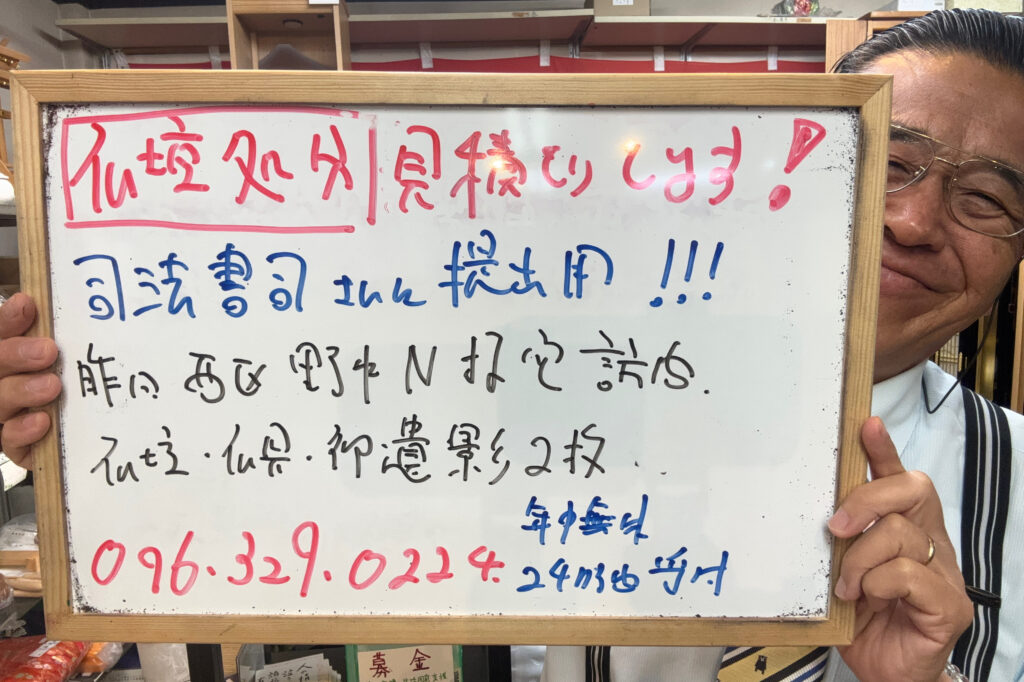 仏壇処分見積りします!
司法書司さんに提出用!!!
昨日西区野中N様宅訪問.
仏壇・仏具・御遺影2枚..
年中無休
096.329.0224.
24時間受付
募金